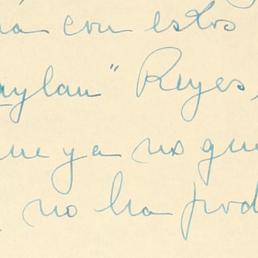 a con estos
aylan" Reyes,
ue ya no que
, no ha pod